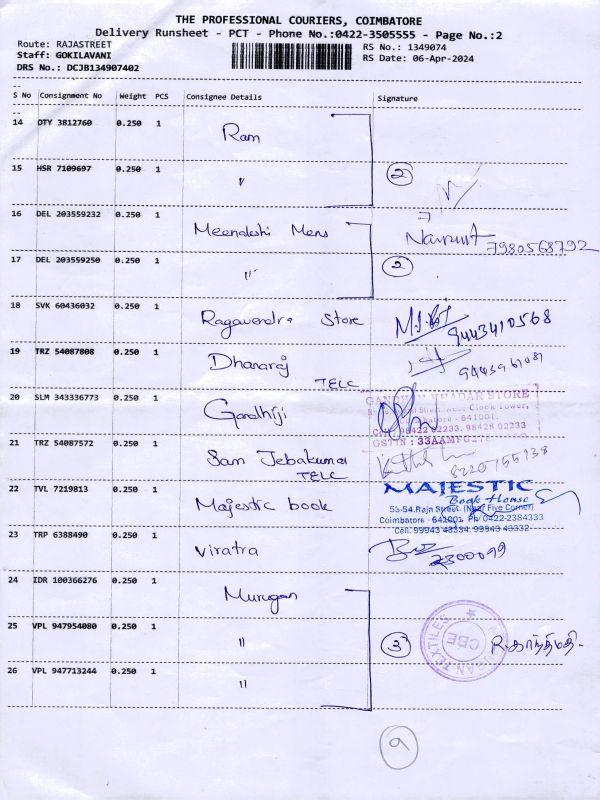 THE PROFESSIONAL COURIERS, COIMBATORE
Delivery Runsheet - PCT - Phone No.:0422-3505555 - Page No.:2
Route: RAJASTREET
RS No.: 1349074
Staff: GOKILAVANI
RS Date: 06-Apr-2024
DRS No.: DCJB134907402
S No Consignment No Weight PCS Consignee Details Signature
14 OTY 3812760 0.250 1 Ram
15 HSR 7109697 0.250 1 〃 2
16 DEL 203559232 0.250 1 Meenakshi Mens 7980568792
17 DEL 203559250 0.250 1 〃 2
18 SVK 60436032 0.250 1 Ragavendra Store 9443410568
19 TRZ 54087808 0.250 1 Dhanaraj
TELC
20 SLM 343336773 0.250 1 Gandhiji
GANDHIJI KHADAR STORE
Clock Tower,
Coimbatore - 641001.
Cell: 98422 02233, 98428 02233
21 TRZ 54087572 0.250 1 Sam Jebakumar
TELC 8220755738
22 TVL 7219813 0.250 1 Majestic book
MAJESTIC
Book House
53-54, Raja Street, (Near Five Corner)
Coimbatore - 641001. Ph: 0422-2384333
Cell: 99943 43334, 99943 43332
23 TRP 6388490 0.250 1 Viratra 2300099
24 IDR 100366276 0.250 1 Murugan
25 VPL 947954080 0.250 1 〃 3 R. காந்திமதி.
TEXTILES
CBE
26 VPL 947713244 0.250 1 〃
9